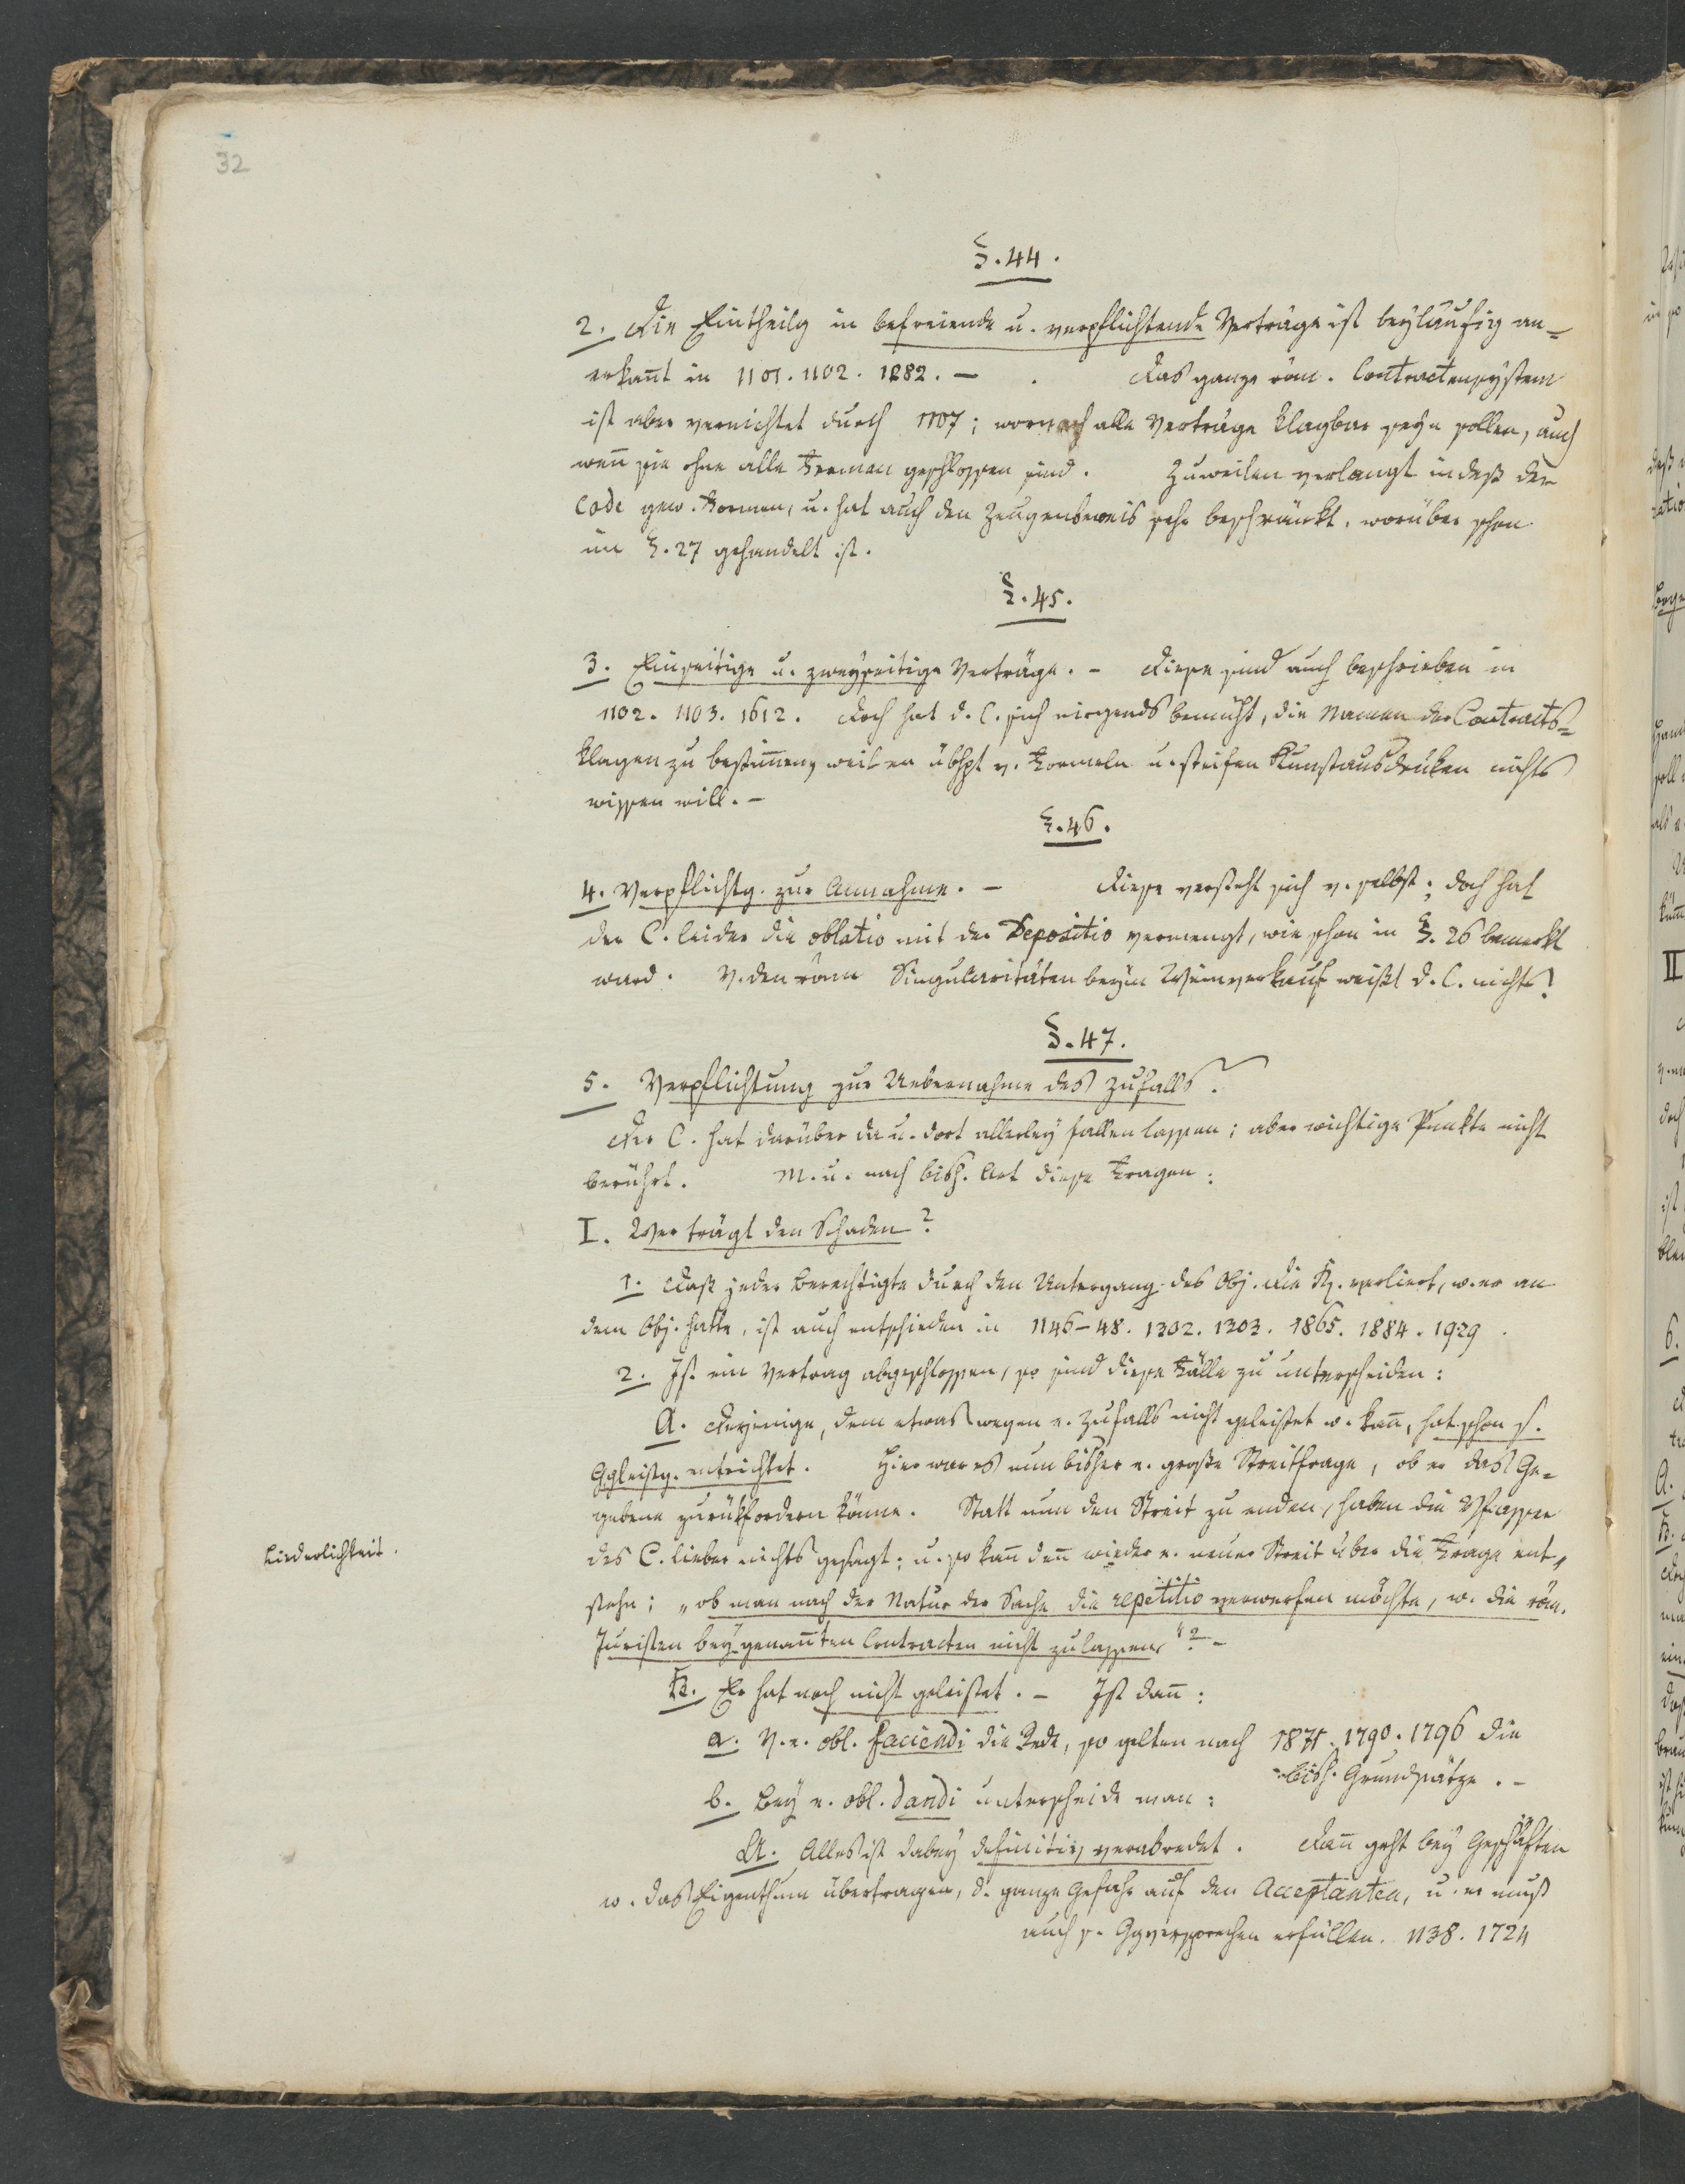 32
§. 44.
2. Die Eintheilg in befreiende u. verpflichtende Verträge ist beyläufig an=
erkañt in 1101. 1102. 1282. — . Das ganze röm. Contractensystem
ist aber vernichtet durch 1107; wornach alle Verträge klagbar seyn sollen, auch
weñ sie ohne alle Formen geschlossen sind. Zuweilen verlangt indeß der
Code gew. Formen, u. hat auch den Zeugenbeweis sehr beschränkt, worüber schon
im §. 27 gehandelt ist.
§. 45.
3. Einseitige u. zweyseitige Verträge. – Diese sind auch beschrieben in
1102. 1103. 1612. Doch hat d. C. sich nirgends bemüht, die Namen der Contracts=
klagen zu bestim̃en, weil er übhpt v. Formeln u. steifen Kunstausdrüken nichts
wissen will. –
§. 46.
4. Verpflichtg. zur Annahme. – Diese versteht sich v. selbst; doch hat
der C. leider die oblatio mit der Depositio vermengt, wie schon in §. 26 bemerkt
ward. V. den röm Singularitäten beym Weinverkauf weißt d. C. nichts!
§. 47.
5. Verpflichtung zur Uebernahme des Zufalls.
Der C. hat darüber da u. dort allerley fallen lassen; aber wichtige Punkte nicht
berührt. M. u. nach bish. Art diese Fragen:
I. Wer trägt den Schaden?
1. Daß jeder Berechtigte durch den Untergang des Obj. die R. verliert, w. er an
dem Obj. hatte, ist auch entschieden in 1146–48. 1302. 1303. 1865. 1884. 1929.
2. Ist ein Vertrag abgeschlossen, so sind diese Fälle zu unterscheiden:
A. Derjenige, dem etwas wegen e. Zufalls nicht geleistet w. kañ, hat schon s.
Ggleistg. entrichtet. Hier war es nun bisher e. große Streitfrage, ob er das Ge=
gebene zurükfordern könne. Statt nun den Streit zu enden, haben die Vfasser
des C. lieber nichts gesagt; u. so kañ deñ wieder e. neuer Streit über die Frage ent„
stehn; „ob man nach der Natur der Sache die repetitio verwerfen möchte, w. die röm.
Juristen bey genañten Contracten nicht zulassen“? –
Liederlichkeit.
B. Er hat noch nicht geleistet. – Ist dañ:
a. V. e. obl. faciendi die Rede, so gelten nach 1871. 1790. 1796 die
bish. Grundsätze. –
b. Bey e. obl. dandi unterscheide man:
A. Alles ist dabey definitiv verabredet. Dañ geht bey Geschäften
w. das Eigenthum übertragen, d. ganze Gefahr auf den Acceptanten, u. er muß
auch s. Ggversprechen erfüllen. 1138. 1724